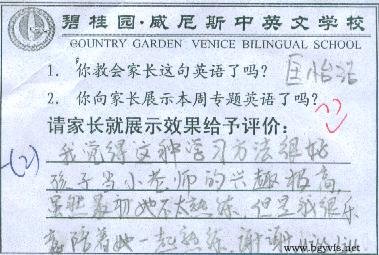 碧桂园·威尼斯中英文学校
COUNTRY GARDEN VENICE BILINGUAL SCHOOL
1. 你教会家长这句英语了吗? 匡怡
2. 你向家长展示本周专题英语了吗?
请家长就展示效果给予评价:
(2) 我觉得这种学习方法很好
孩子当小老师的兴趣极高,
虽然最初她不太熟练,但是我很乐
意陪着她一起熟练,谢谢
www.bgyvfs.net